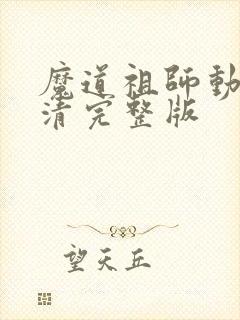 魔道祖師動
清完整版
望天丘